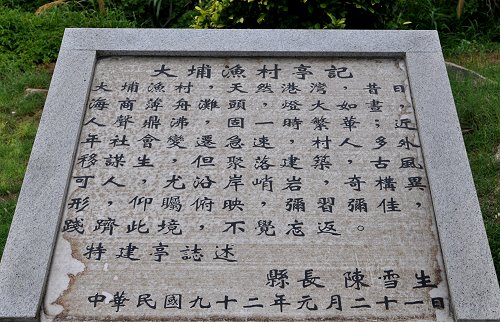 大埔漁村亭記
大埔漁村，天然港灣，昔日
海商薄舟灘頭，燈火如晝；
人聲鼎沸，固一時繁華；近
年社會變遷急速，村人多外
移謀生，但聚落建築，古風
可人，尤沿岸峭岩，奇構異
形，仰矚俯映，彌習彌佳，
踐躋此境，不覺忘返。
特建亭誌述
縣長 陳雪生
中華民國九十二年元月二十一日